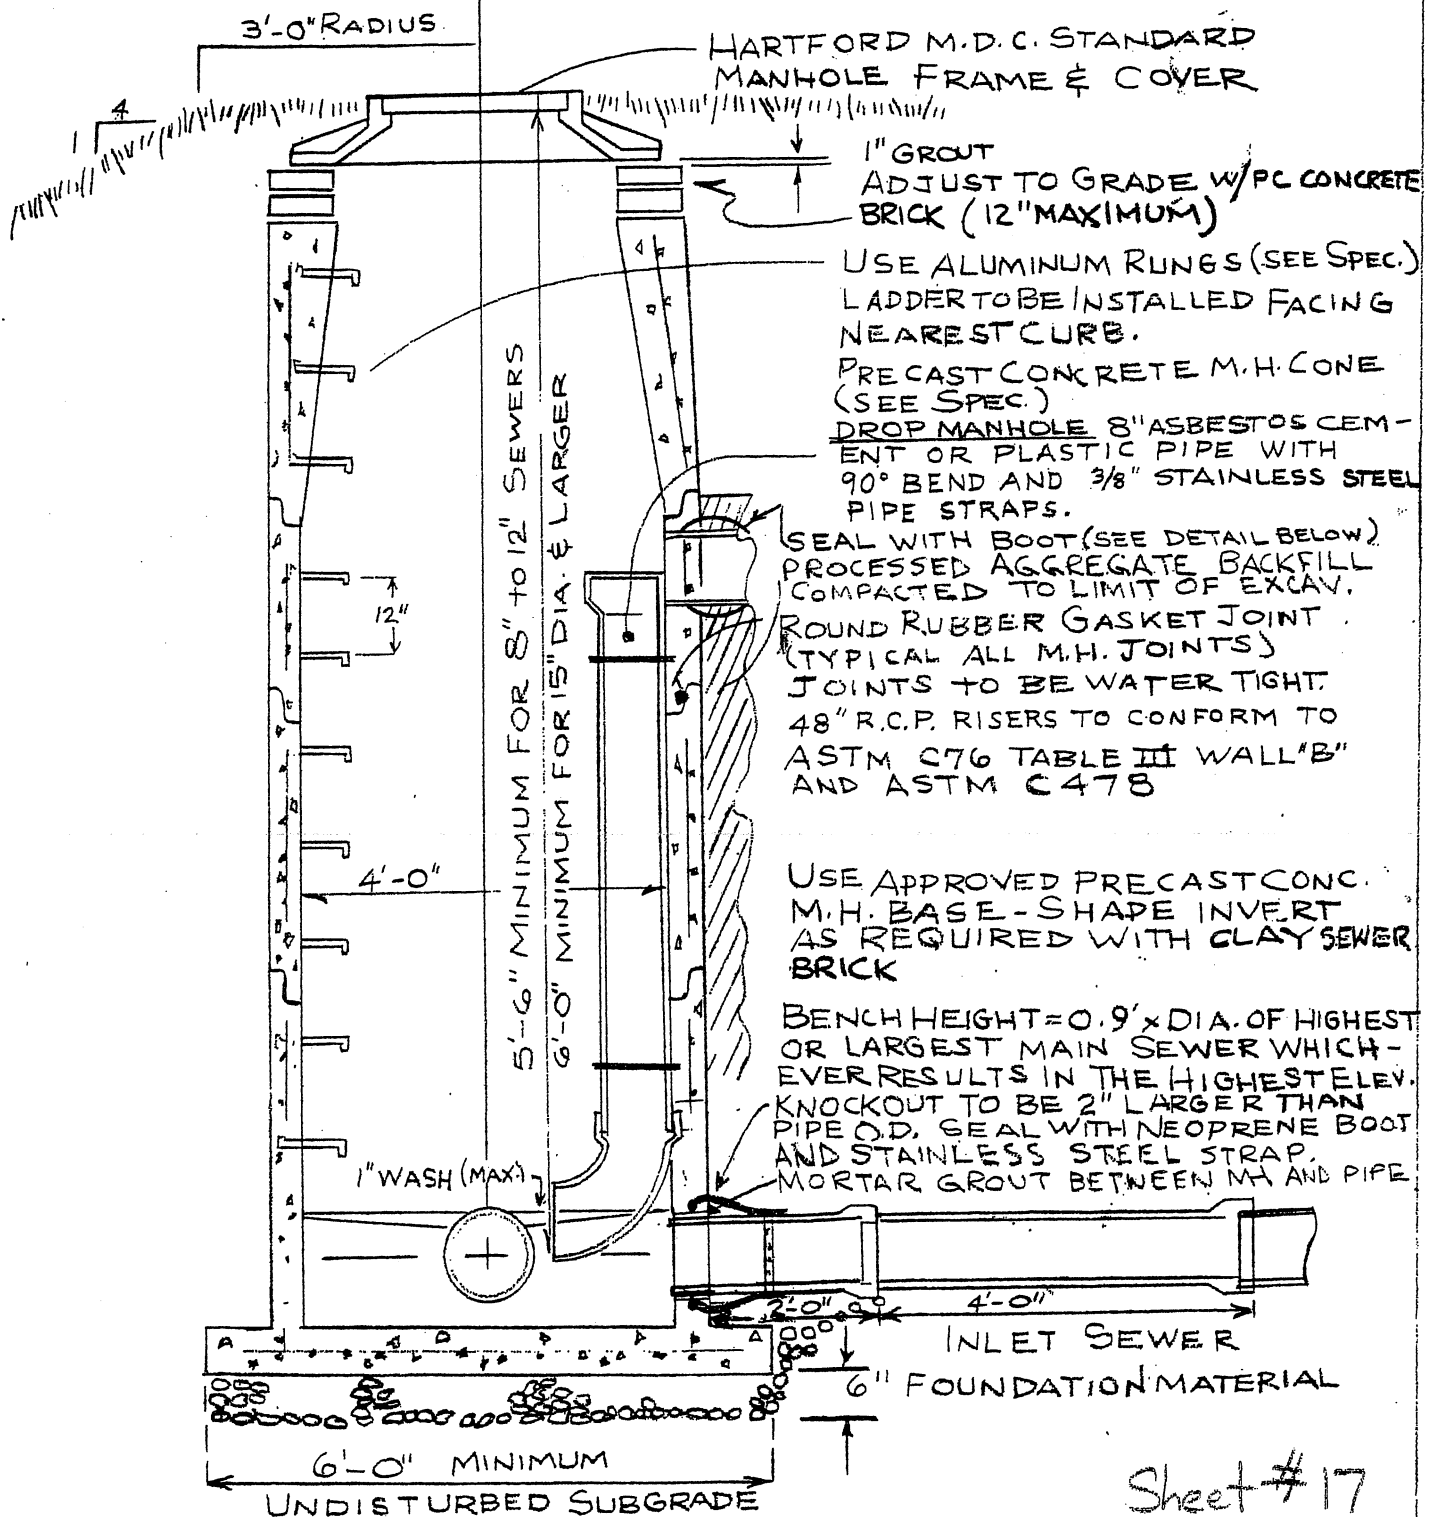 3'-0" RADIUS
HARTFORD M.D.C. STANDARD
MANHOLE FRAME & COVER
4
1
1" GROUT
ADJUST TO GRADE W/PC CONCRETE
BRICK (12" MAXIMUM)
USE ALUMINUM RUNGS (SEE SPEC.)
LADDER TO BE INSTALLED FACING
NEAREST CURB.
PRECAST CONCRETE M.H. CONE
(SEE SPEC.)
DROP MANHOLE 8" ASBESTOS CEM-
ENT OR PLASTIC PIPE WITH
90° BEND AND 3/8" STAINLESS STEEL
PIPE STRAPS.
SEAL WITH BOOT (SEE DETAIL BELOW)
PROCESSED AGGREGATE BACKFILL
COMPACTED TO LIMIT OF EXCAV.
ROUND RUBBER GASKET JOINT
(TYPICAL ALL M.H. JOINTS)
JOINTS TO BE WATER TIGHT.
48" R.C.P. RISERS TO CONFORM TO
ASTM C76 TABLE III WALL "B"
AND ASTM C478
12"
5'-6" MINIMUM FOR 8" TO 12" SEWERS
6'-0" MINIMUM FOR 15" DIA. & LARGER
4'-0"
USE APPROVED PRECAST CONC.
M.H. BASE - SHAPE INVERT
AS REQUIRED WITH CLAY SEWER
BRICK
BENCH HEIGHT = 0.9' x DIA. OF HIGHEST
OR LARGEST MAIN SEWER WHICH-
EVER RESULTS IN THE HIGHEST ELEV.
KNOCKOUT TO BE 2" LARGER THAN
PIPE O.D. SEAL WITH NEOPRENE BOOT
AND STAINLESS STEEL STRAP.
MORTAR GROUT BETWEEN MH AND PIPE
1" WASH (MAX.)
2'-0"
4'-0"
INLET SEWER
6" FOUNDATION MATERIAL
6'-0" MINIMUM
UNDISTURBED SUBGRADE
Sheet # 17